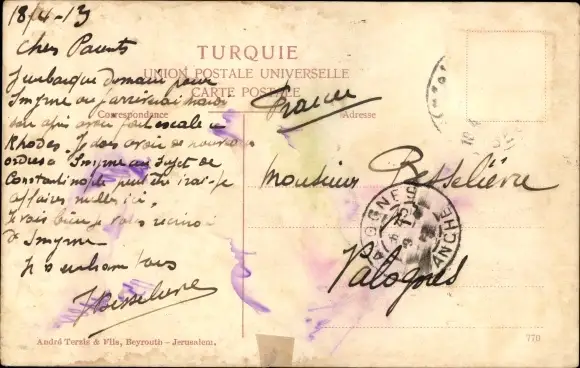 18/4-13
Chers Parents
J'embarque demain pour
Smyrne ou j'arriverai mardi
soir après avoir fait escale à
Rhodes. Je dois avoir de nouveaux
ordres à Smyrne au sujet de
Constantinople peut être irai-je
affaires nulles ici,
Je vais bien je vous écrirai
de Smyrne
Je vs embrasse tous
Besselievre
TURQUIE
UNION POSTALE UNIVERSELLE
CARTE POSTALE
Correspondance
Adresse
France
Monsieur Besselièvre
Valognes
VALOGNES
MANCHE
André Terzis & Fils, Beyrouth - Jerusalem.
770